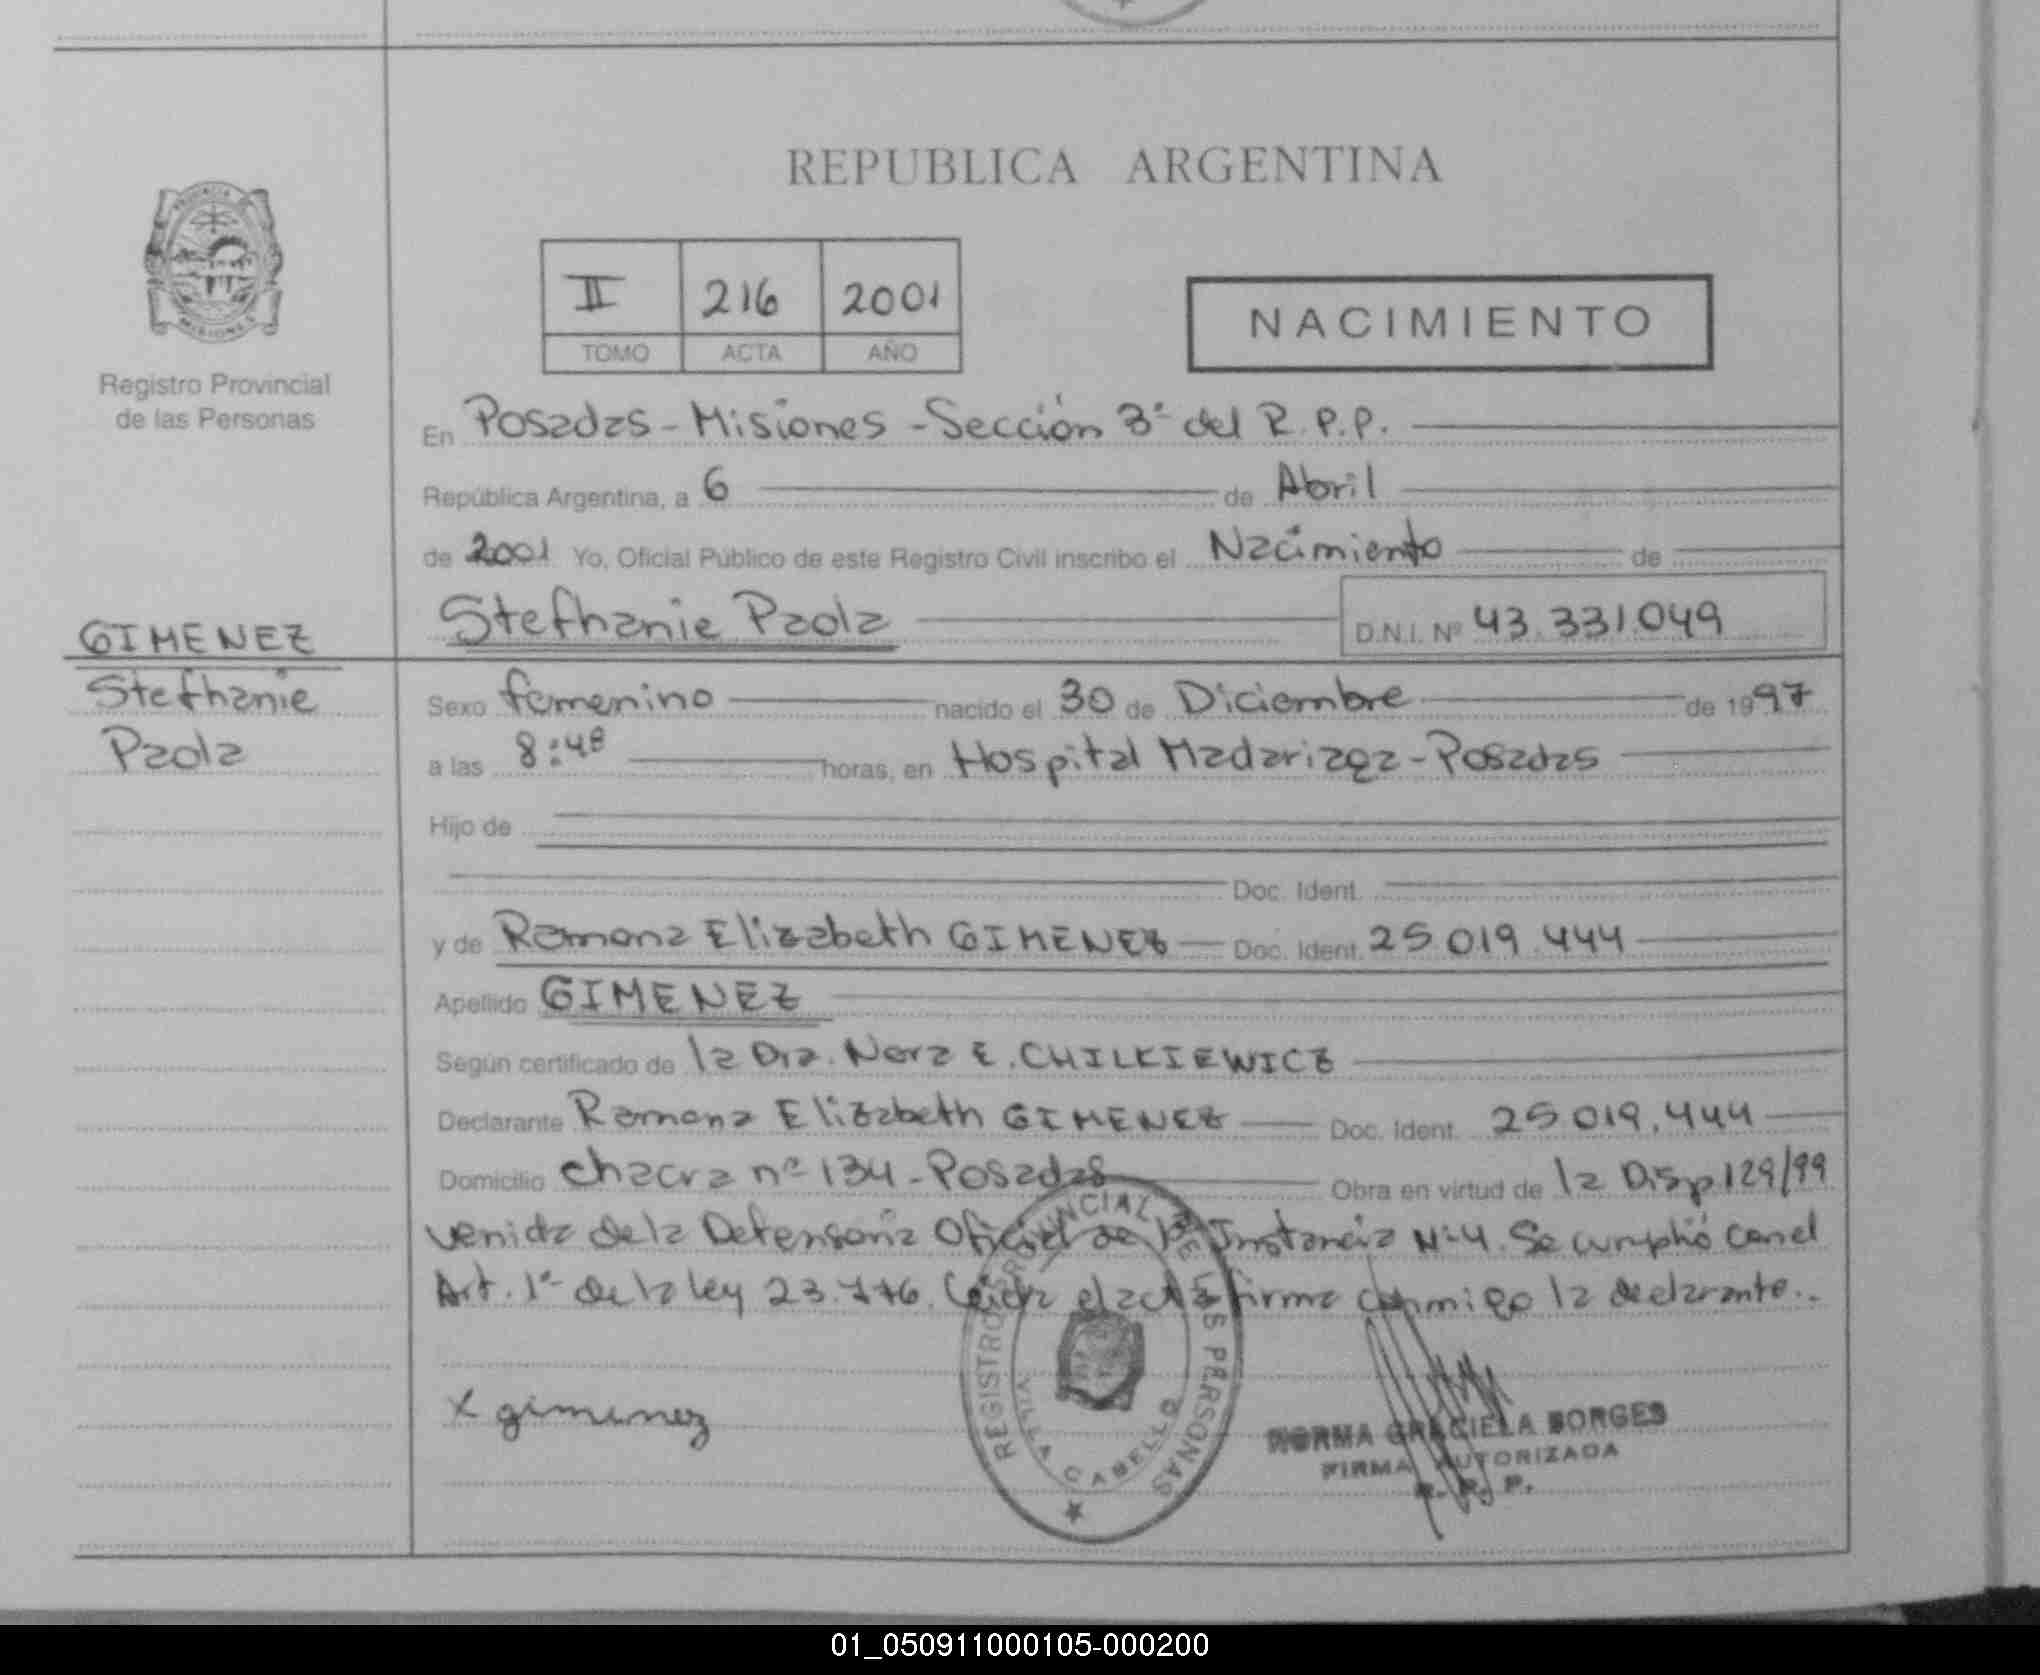 REPUBLICA ARGENTINA
II 216 2001
TOMO ACTA AÑO
NACIMIENTO
PROVINCIA
MISIONES
Registro Provincial
de las Personas
En Posadas - Misiones - Sección 3ª del R.P.P.
República Argentina, a 6 de Abril
de 2001 Yo, Oficial Público de este Registro Civil inscribo el Nacimiento de
Stefhanie Paola D.N.I. Nº 43.331.049
GIMENEZ
Stefhanie
Paola
Sexo femenino nacido el 30 de Diciembre de 1997
a las 8:48 horas, en Hospital Madariaga - Posadas
Hijo de
Doc. Ident.
y de Ramona Elizabeth GIMENEZ Doc. Ident. 25.019.444
Apellido GIMENEZ
Según certificado de la Dra. Nora E. CHILKIEWICZ
Declarante Ramona Elizabeth GIMENEZ Doc. Ident. 25.019.444
Domicilio chacra nº 134 - Posadas Obra en virtud de la Disp 129/99
venida de la Defensoria Oficial de 1ª Instancia Nº 4. Se cumplió con el
Art. 1º de la ley 23.776. Leida el acta firma conmigo la declarante..
x gimenez
REGISTRO PROVINCIAL DE LAS PERSONAS
VILLA CABELLO
NORMA GRACIELA BORGES
FIRMA AUTORIZADA
R. R. P.
01_050911000105-000200